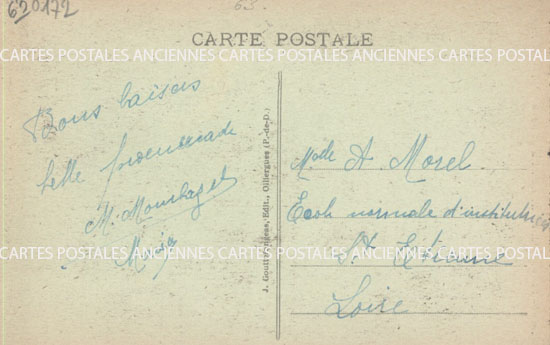 620172
63
CARTE POSTALE
CARTES POSTALES ANCIENNES CARTES POSTALES ANCIENNES CARTES POSTALES
Bons baisers
belle promenade
M. Mourlaget
J. Goutte- Edit., Olliergues (P.-de-D.)
Melle A. Morel.
Ecole normale d'institutrices
CARTES POSTALES ANCIENNES CARTES POSTALES ANCIENNES CARTES POSTALES
St Etienne
Loire